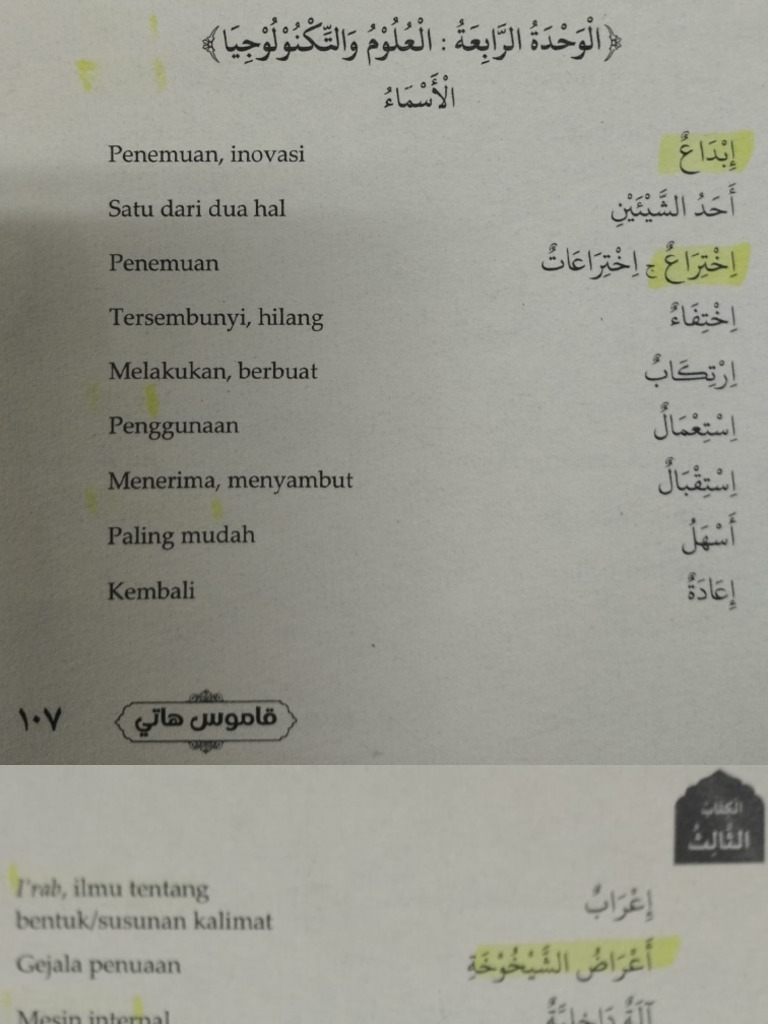 ﴿الْوَحْدَةُ الرَّابِعَةُ : الْعُلُوْمُ وَالتِّكْنُوْلُوْجِيَا﴾
الْأَسْمَاءُ
Penemuan, inovasi إِبْدَاعٌ
Satu dari dua hal أَحَدُ الشَّيْئَيْنِ
Penemuan اِخْتِرَاعٌ ج اِخْتِرَاعَاتٌ
Tersembunyi, hilang اِخْتِفَاءٌ
Melakukan, berbuat اِرْتِكَابٌ
Penggunaan اِسْتِعْمَالٌ
Menerima, menyambut اِسْتِقْبَالٌ
Paling mudah أَسْهَلُ
Kembali إِعَادَةٌ
١٠٧ قاموس هاتي
الكتاب
الثَّالِثُ
I'rab, ilmu tentang
bentuk/susunan kalimat إِعْرَابٌ
Gejala penuaan أَعْرَاضُ الشَّيْخُوْخَةِ
Mesin internal آلَةٌ دَاخِلِيَّةٌ